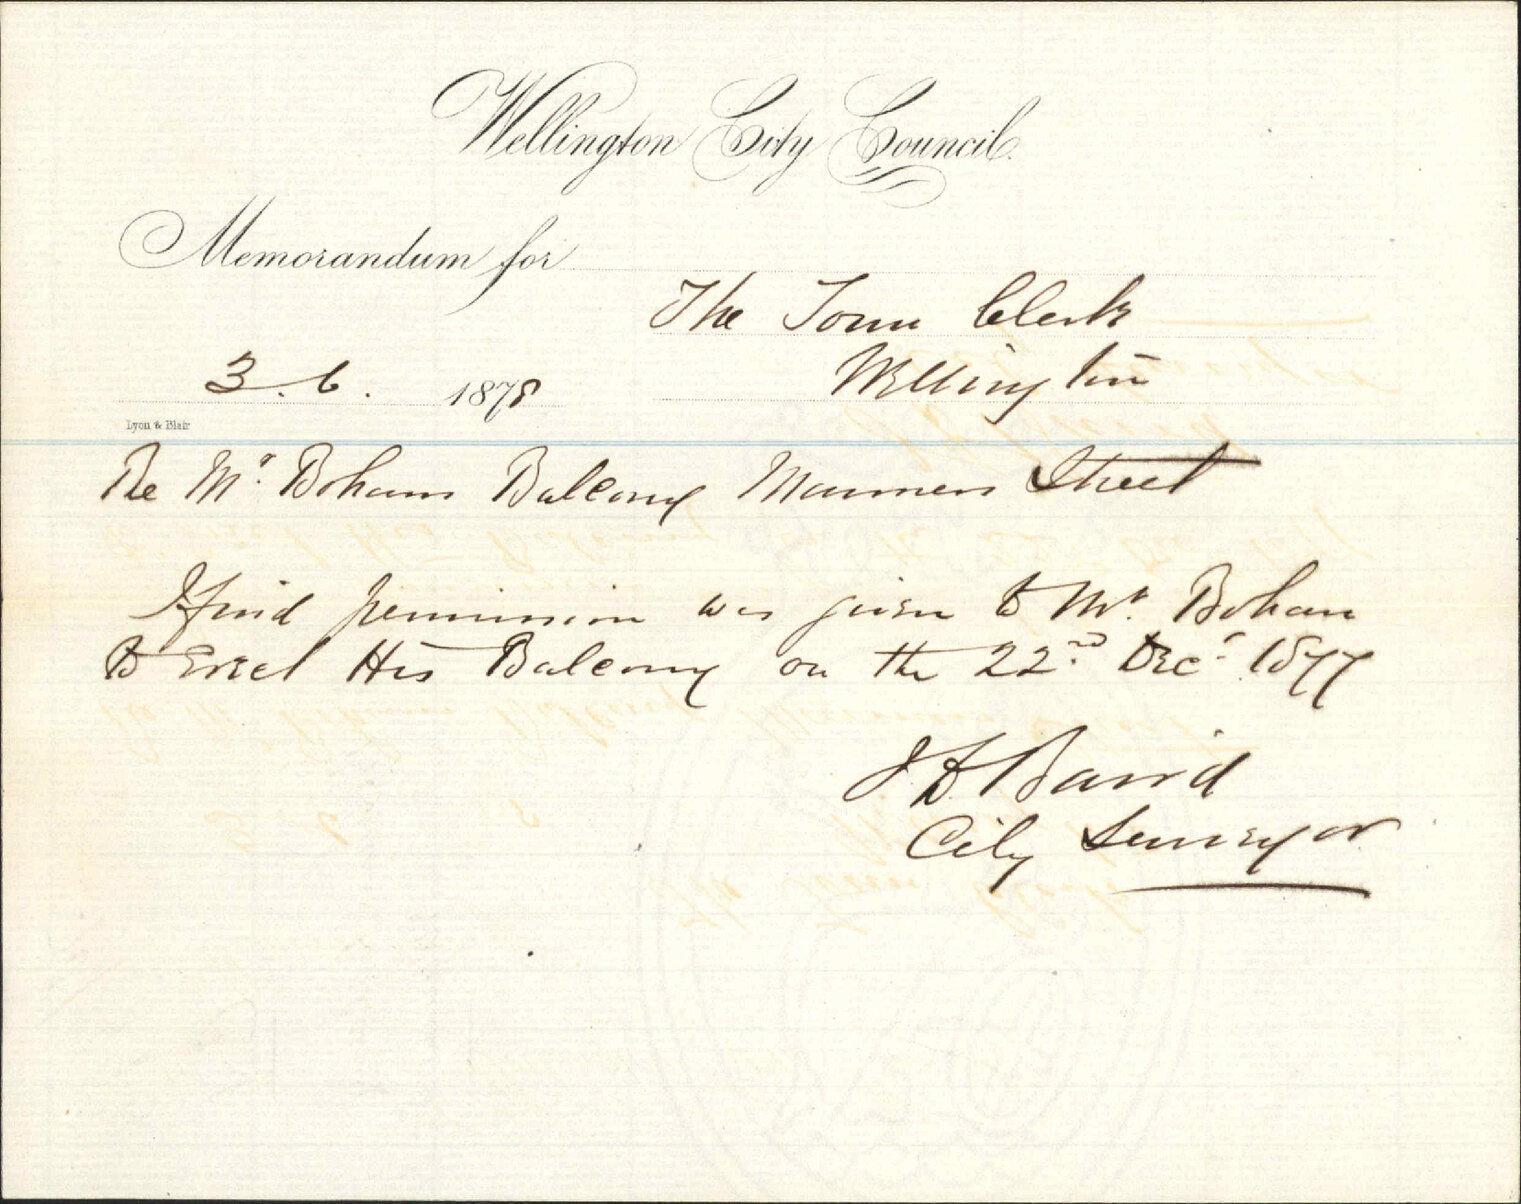 Wellington City Council.
Memorandum for
The Town Clerk
3.6. 1878
Wellington
Lyon & Blair
Re Mr. Bohans Balcony Manners Street
I find permission was given to Mr. Bohan
to Erect His Balcony on the 22nd. Decr. 1877
J D Baird
City Surveyor